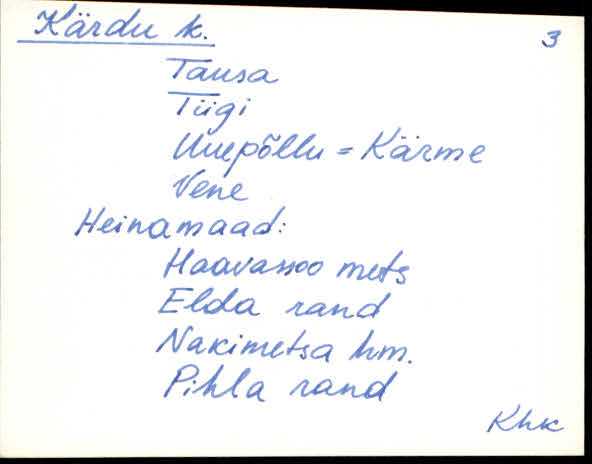 Kärdu k.
3
Tausa
Tiigi
Uuepõllu = Kärme
Vene
Heinamaad:
Haavassoo mets
Elda rand
Nakimetsa hm.
Pihla rand
Khk